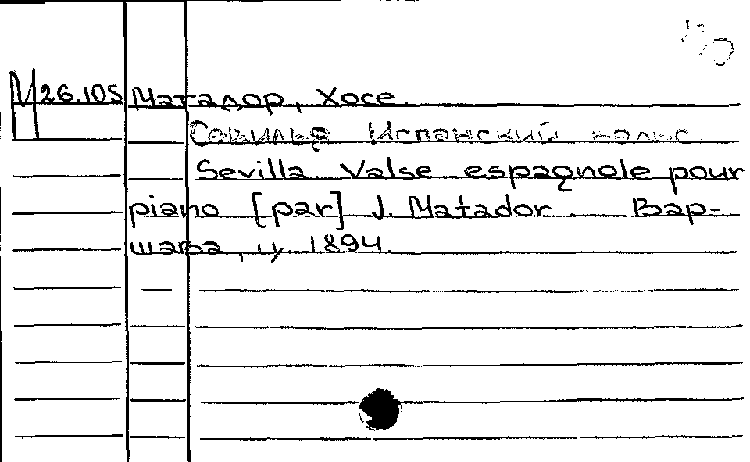 М 26.105 Матадор, Хосе.
Севилья Испанский вальс
Sevilla Valse espagnole pour
piano [par] J. Matador. Вар-
шава, ц. 1894.